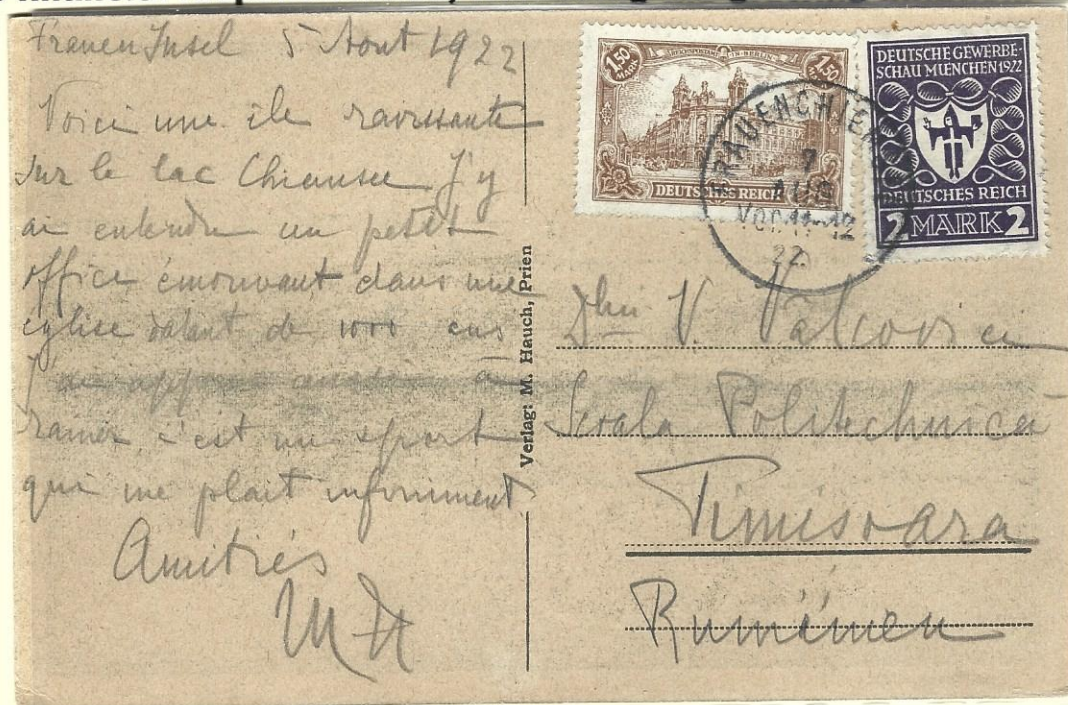 Frauen Insel 5 Aout 1922
Voici une ile ravissante
sur le lac Chiemsee J'y
ai entendu un petit
office émouvant dans une
église datant de 1000 ans
J'ai appris à
ramer c'est un sport
qui me plait infiniment
Amitiés
Verlag: M. Hauch, Prien
1,50 MARK
REICHSPOSTAMT IN BERLIN
1,50 MARK
DEUTSCHES REICH
DEUTSCHE GEWERBE-
SCHAU MUENCHEN 1922
DEUTSCHES REICH
2 MARK 2
FRAUENCHIEM
7
AUG
Vor. 11-12
22
V. Valcovici
Scoala Politechnică
Timisoara
Rumänien